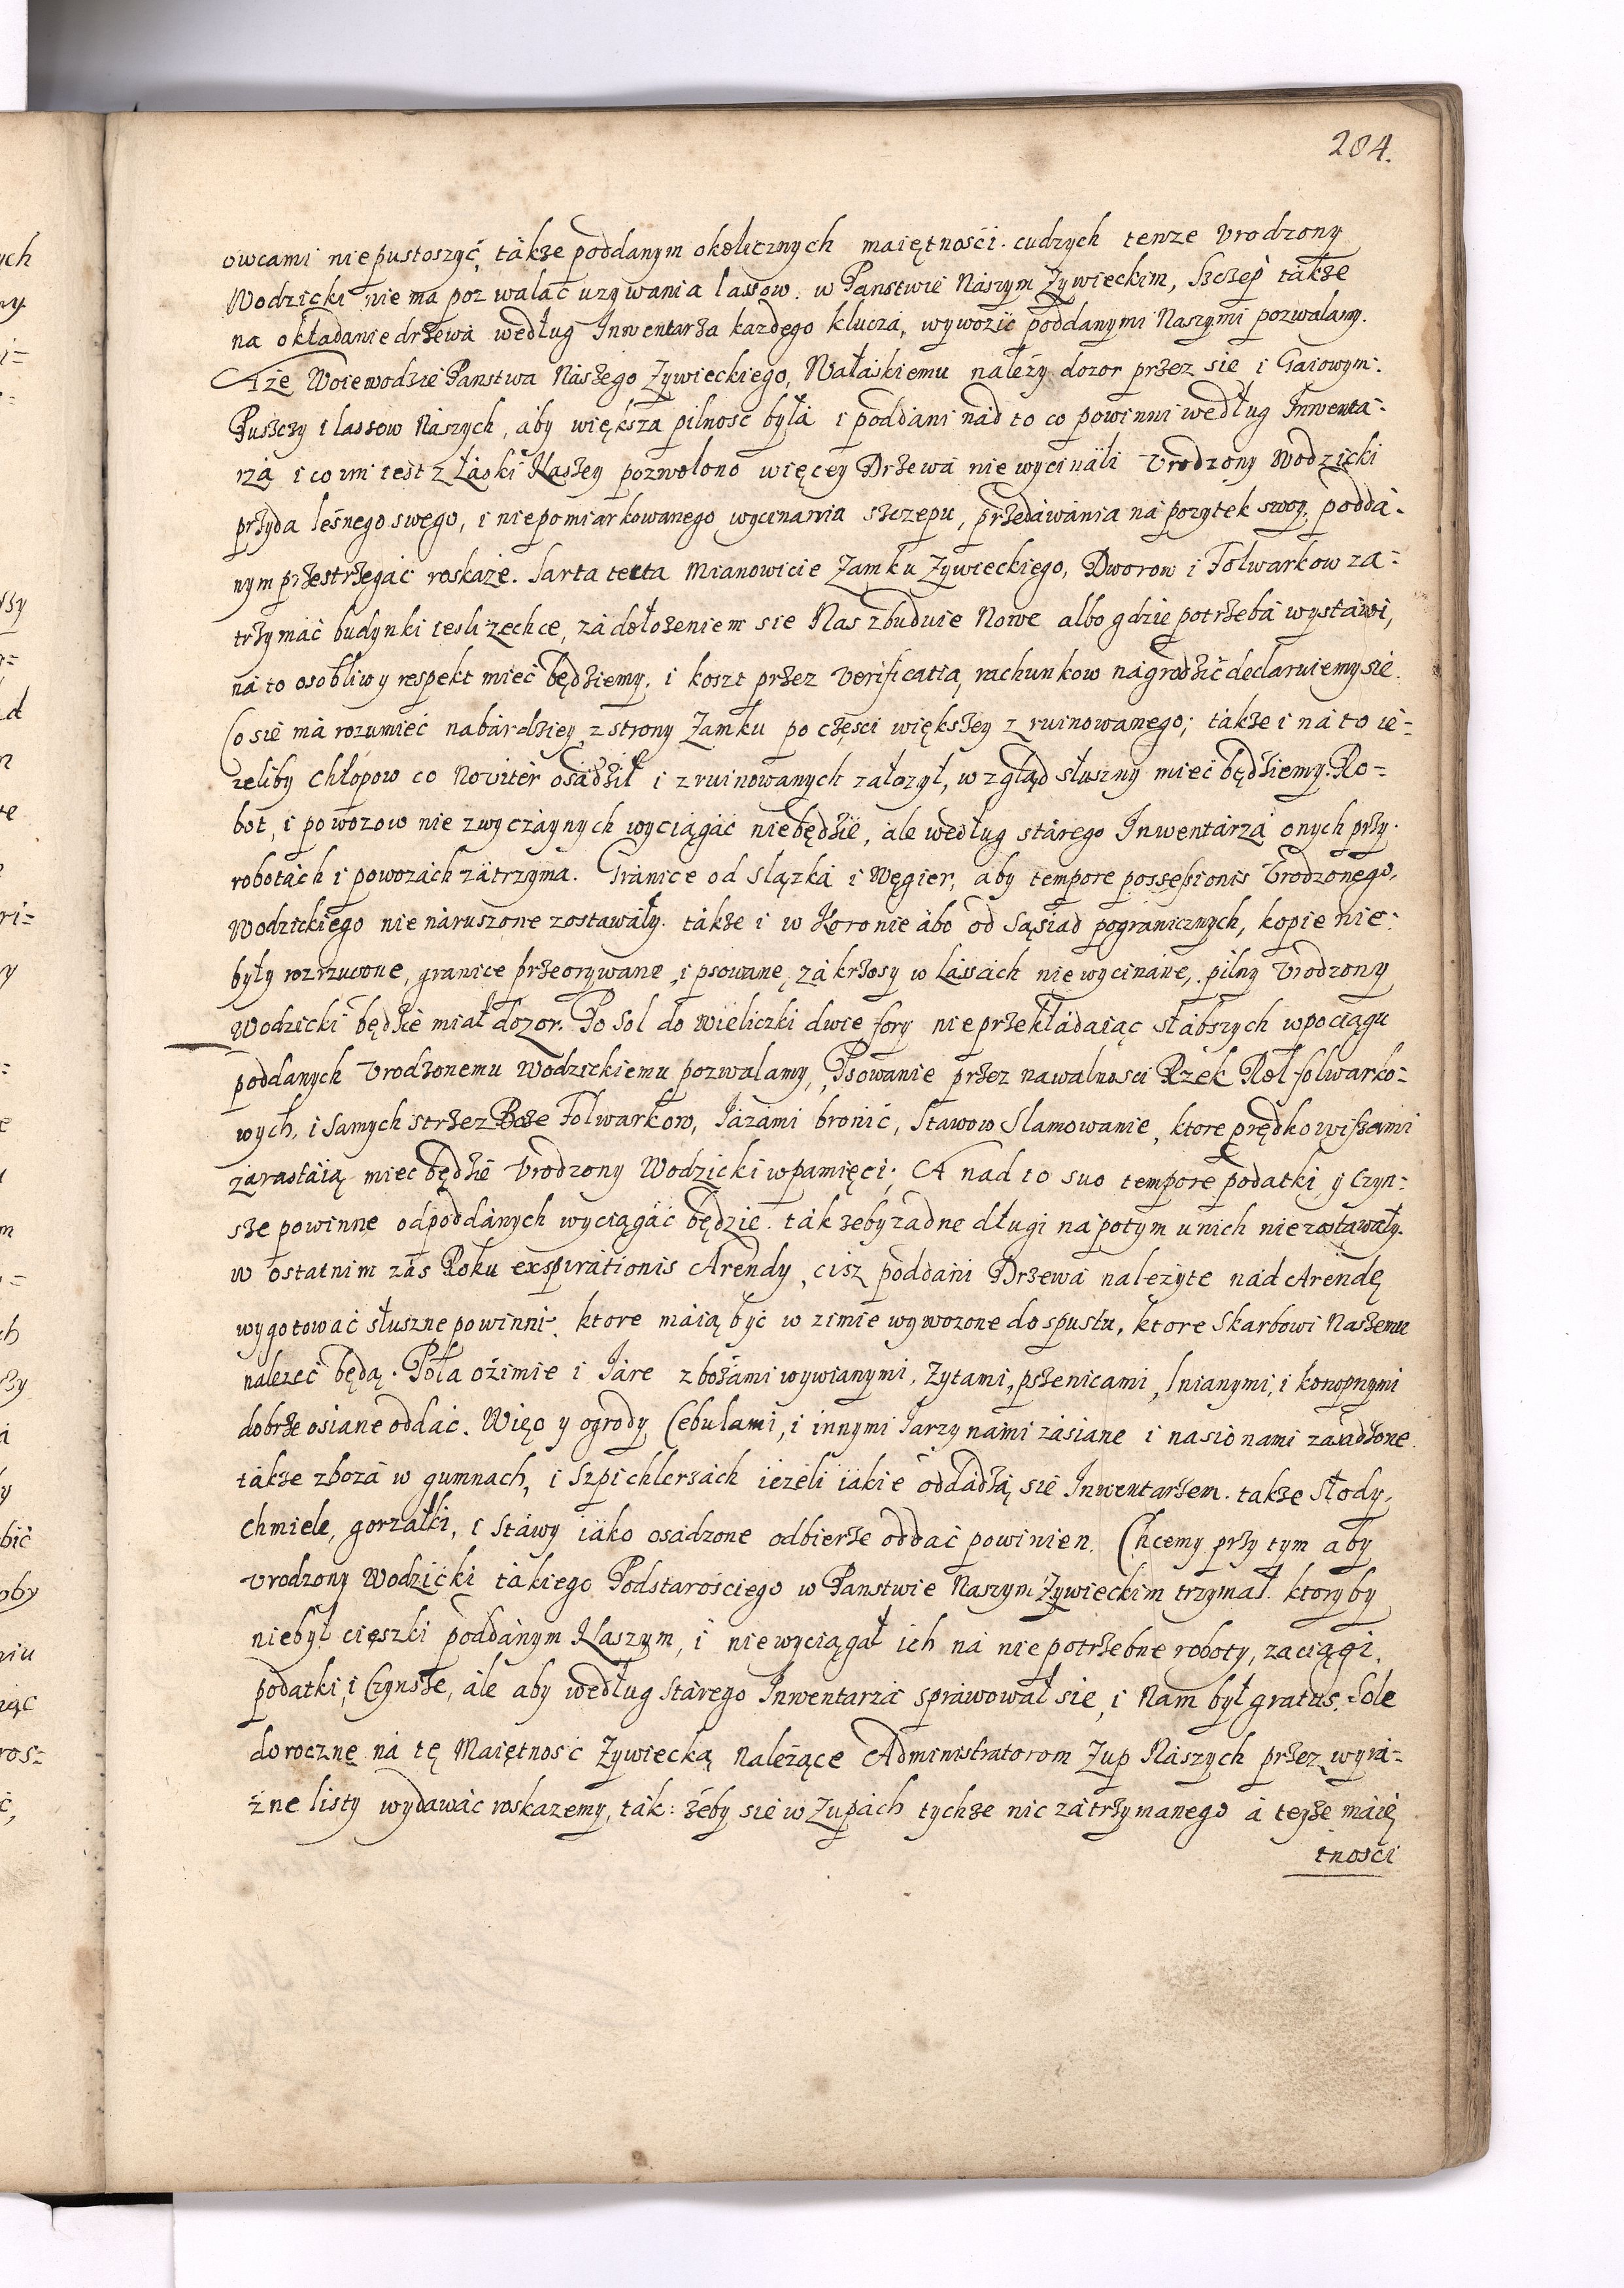 204.
owcami niepustoszyć, także poddanym okolicznych maiętnośći cudzych tenze Vrodzony
Wodzicki nie ma pozwalać uzywania lassow w Panstwie Nászym Zywieckim, Szczep także
na okładanie drzewá według Inwentarza kazdego kluczá, wywozić poddanymi Naszymi pozwalamy.
A że Woiewodzie Panstwa Nászego Zywieckiego, Wałáskiemu należy dozor przez sie i Gaiowym:
Puszczy i lassow Nászych, aby większa pilność byłá i poddani nád to co powinni według Inwentá=
rzá i co im iest z Łáski Naszey pozwolono więcey Drzewá nie wycináli Vrodzony Wodzicki
przyda leśnego swego, i niepomiarkowanego wycinania szczepu, przedáwánia ná pozytek swoy, poddá=
nym przestrzegáć roskaże. Sarta tecta Mianowicie Zamku Zywieckiego, Dworow i Folwarkow za=
trzymáć budynki iesli zechce, zá dołożeniem sie Nas zbuduie Nowe albo gdzie potrzebá wystáwi,
ná to osobliwy respekt mieć będziemy, i koszt przez Verificatią rachunkow nágrodźić declaruiemy sie.
Co sie má rozumieć nabárdziey z strony Zamku po częsci większey zruinowanego; także i ná to ie=
zeliby chłopow co Noviter osádźił i zruinowanych załozył, wzgląd słuszny mieć będźiemy. Ro=
bot, i powozow niezwyczáynych wyciągáć niebędźie, ale według stárego Inwentárzá onych przy
robotách i powozách zátrzyma. Gránice od Slązká i Węgier, aby tempore possessionis Vrodzonego
Wodzickiego nienáruszone zostawáły. także i w Koronie ábo od Sąsiad pogranicznych, kopie nie
były rozrzucone, granice przeorywane, i psowane, zákrzosy w Lássách nie wycináne, pilny Vrodzony
Wodzicki będzie miał dozor. Po Sol do Wieliczki dwie fory nie przekłádaiąc słábszych w pociągu
poddanych Vrodzonemu Wodzickiemu pozwalamy, Psowanie przez nawalnosci Rzek Rol folwarko=
wych, i samych strzez Boże Folwarkow, Jázámi bronić, Stawow Slamowanie, ktore prędko wiszami
zarastáią miec będzie Vrodzony Wodzicki w pamięci; A nad to suo tempore podatki y Czyn=
sze powinne od poddánych wyciągáć będzie. ták zeby zadne długi na potym u nich nie zostawáły.
w ostatnim zás Roku exspirationis Arendy, cisz poddáni Drzewá należyte nád Arendę
wygotowáć słusznie powinni, ktore máią być w zimie wywozone do spustu, ktore Skarbowi Naszemu
nalezeć będą. Polá oźimie i Járe zbożámi wywianymi, Zytami, pszenicami, lnianymi, i konopnymi
dobrze osiane oddáć. Więc y ogrody Cebulami, i innymi Jarzynámi zásiane i nasionámi zasádzone.
także zbozá w gumnach, i Szpichlerzách ieżeli iákie oddádżą się Inwentarzem. także Słody,
Chmiele, gorzałki, i Stáwy iáko osádzone odbierze oddáć powinien. Chcemy przy tym aby
Vrodzony Wodzicki tákiego Podstarośćiego w Panstwie Naszym Zywieckim trzymał. ktoryby
niebył cięszki poddánym Naszym, i niewyciągał ich ná niepotrzebne roboty, zaciągi,
podatki, i Czynsze, ále aby według Stárego Inwentarzá spráwował sie, i Nam był gratus. Sole
doroczne ná tę Maiętność Zywiecką należące Administratorom Zup Nászych przez wyrá=
źne listy wydáwáć roskazemy, ták: żeby sie w Zupách tychże nic zátrzymanego á teyże máię
tnośći